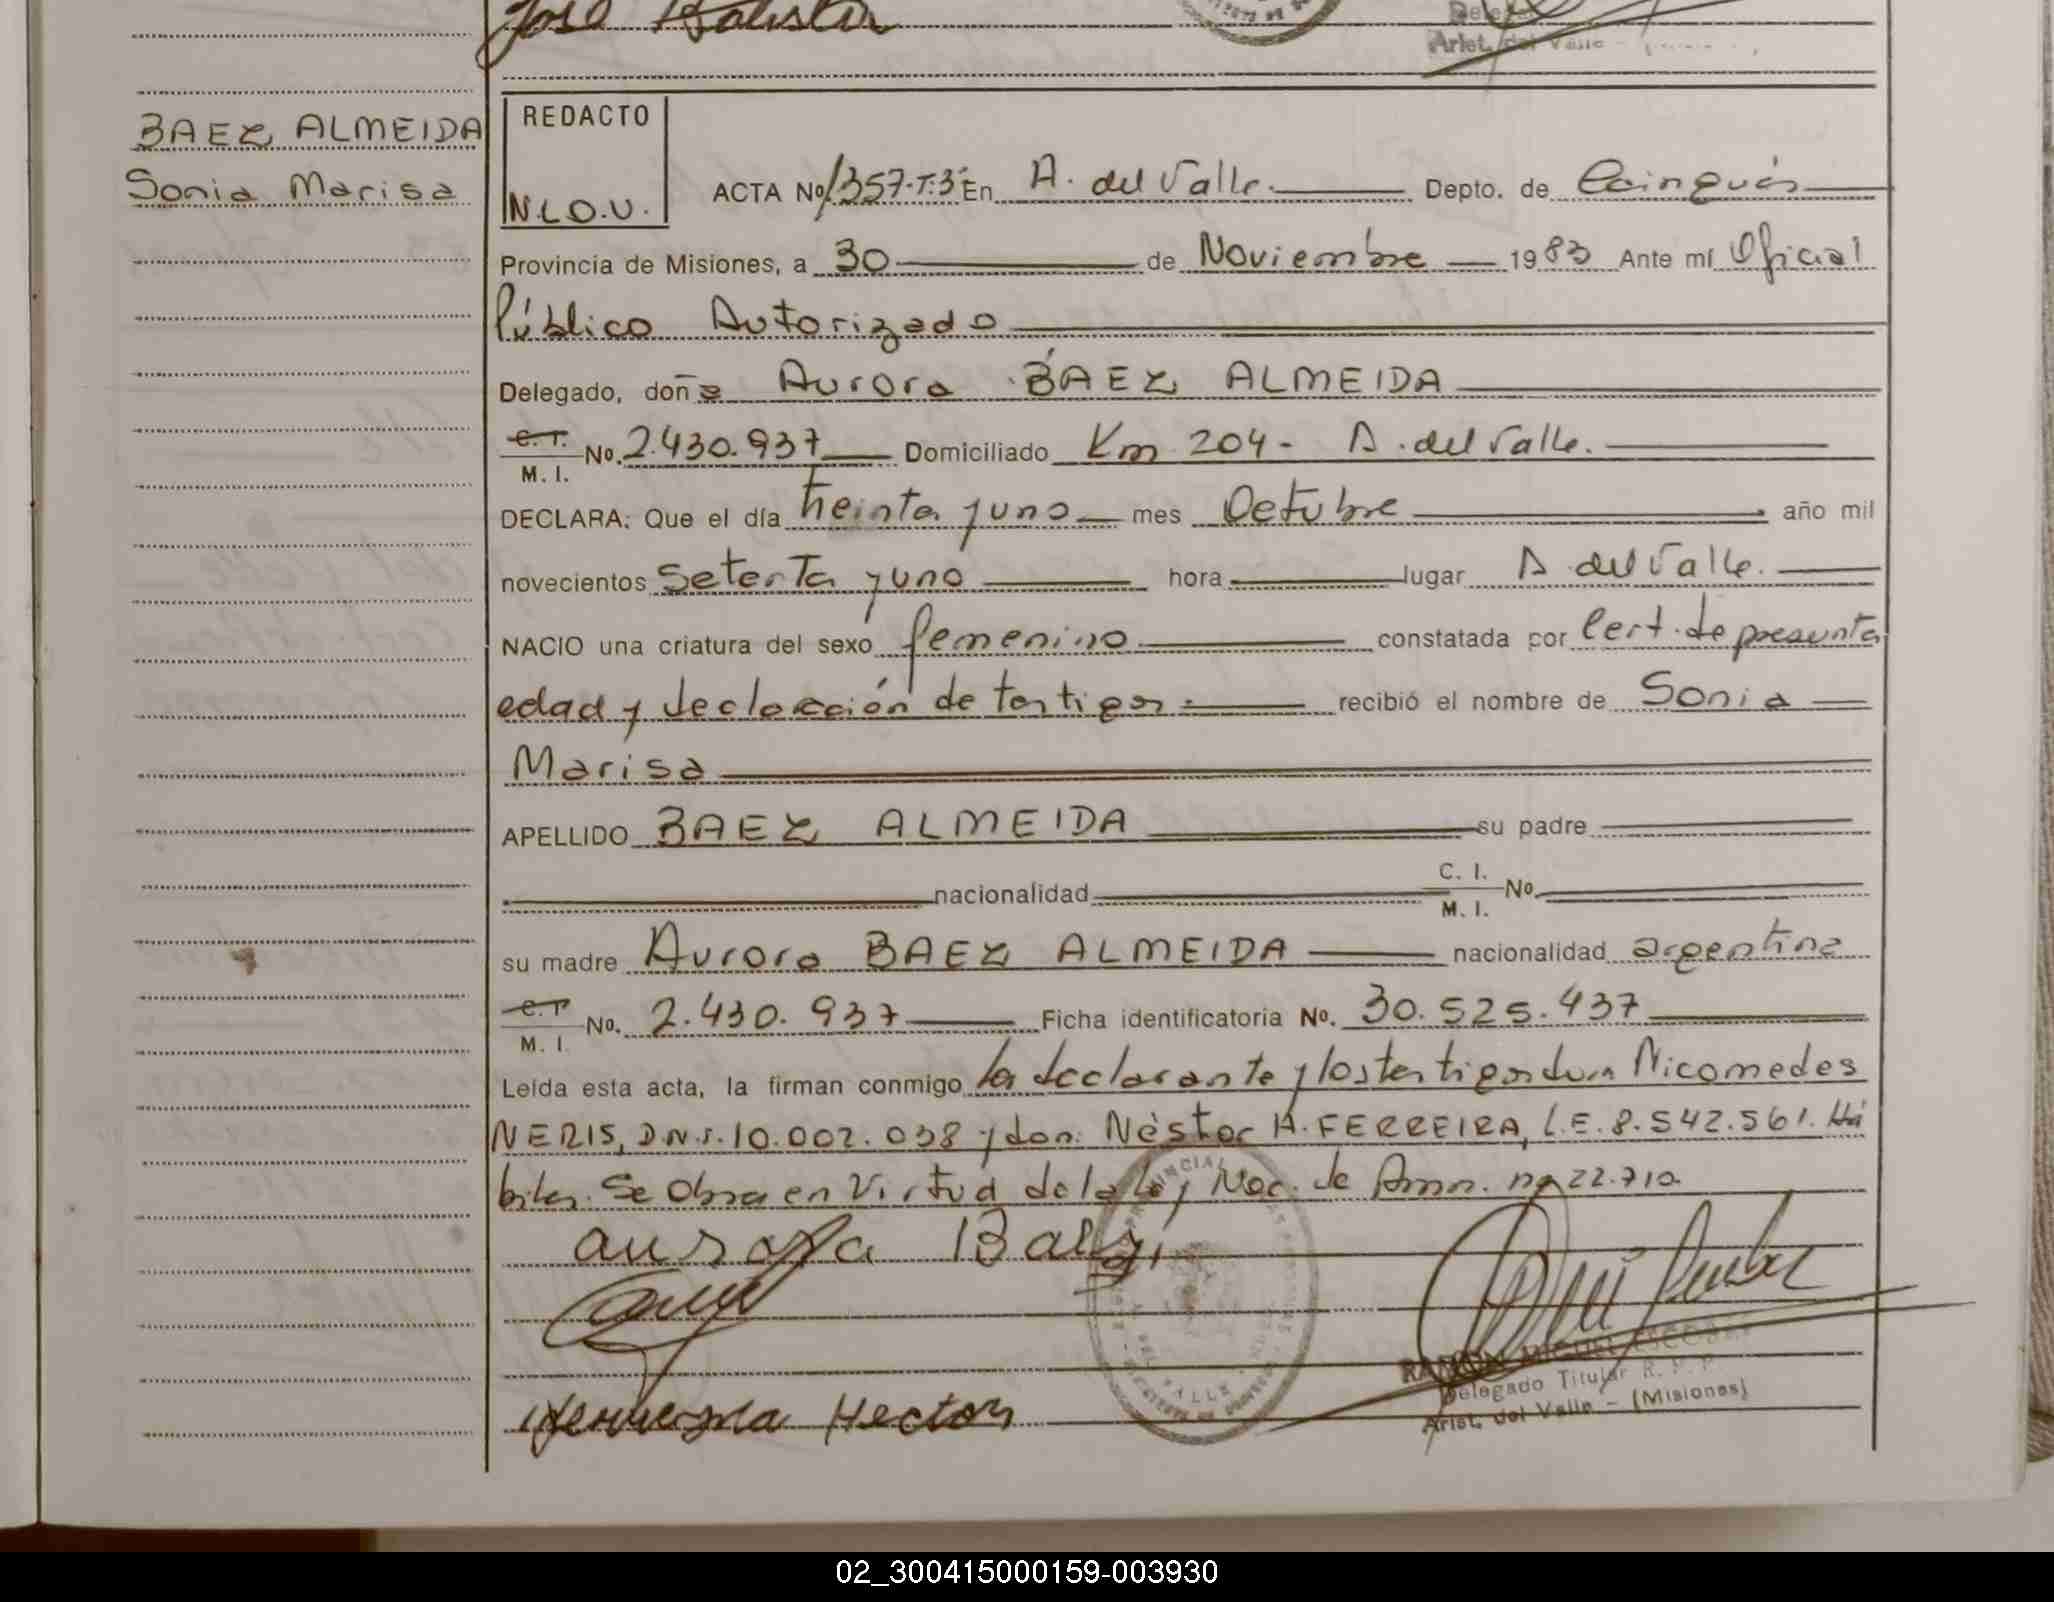 José
Arist. del Valle
BAEZ ALMEIDA
Sonia Marisa
REDACTO
N.L.O.U.
ACTA Nº 1357-T:3º En A. del Valle. Depto. de Cainguás
Provincia de Misiones, a 30 de Noviembre 1983 Ante mí Oficial
Público Autorizado
Delegado, doña Aurora BAEZ ALMEIDA
C. I. M. I. No. 2.430.937 Domiciliado Km 204- A. del Valle.
DECLARA: Que el día treinta y uno mes Octubre año mil
novecientos setenta y uno hora lugar A. del Valle.
NACIO una criatura del sexo femenino constatada por Cert. de presunta
edad y declaración de testigos recibió el nombre de Sonia
Marisa
APELLIDO BAEZ ALMEIDA su padre
nacionalidad C. I. M. I. No.
su madre Aurora BAEZ ALMEIDA nacionalidad argentina
C. I. M. I. No. 2.430.937 Ficha identificatoria No. 30.525.437
Leída esta acta, la firman conmigo la declarante y los testigos don Nicomedes
NERIS, D.N.I. 10.002.038 y don: Néstor H. FERREIRA, L.E. 8.542.561. Há
biles. Se Obra en Virtud de la Ley Nac. de Amn. nº 22.710
aurora Baez
Hector
RAMON MIGUEL ESCOBAR
Delegado Titular R. P. P.
Arist. del Valle - (Misiones)
02_300415000159-003930